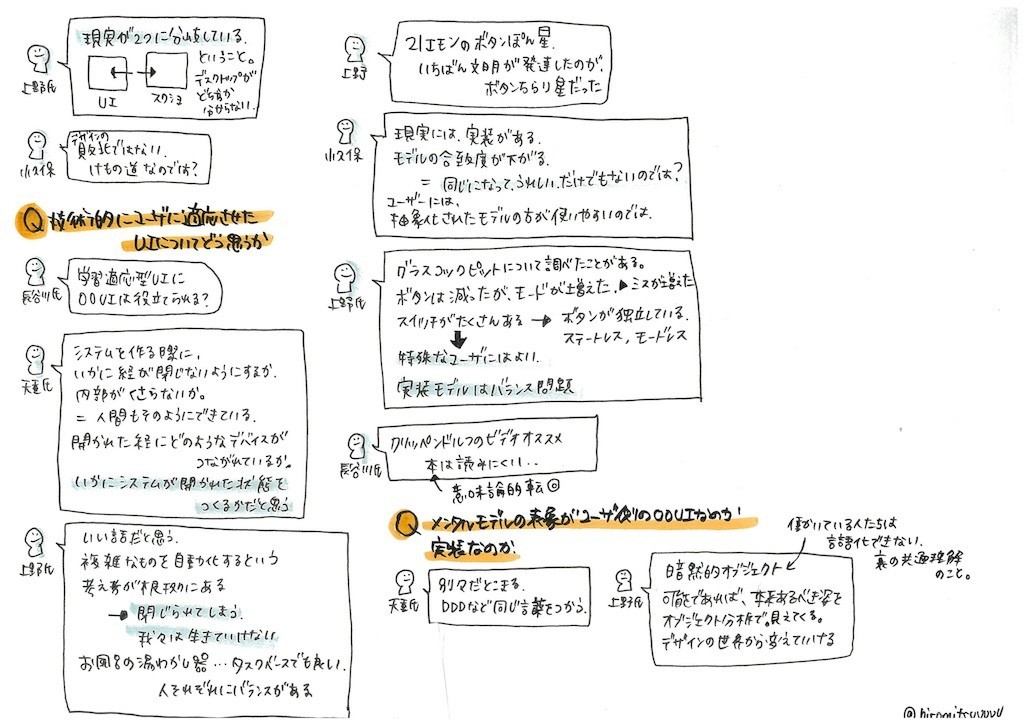 現実が2つに分岐している.
ということ。
デスクトップが
どちらか
分からない.
UI
スクショ
上野氏
デザインの
敗北ではない.
けもの道なのでは?
小久保
Q 技術的にユーザに適応させた
UIについてどう思うか
学習適応型UIに
OOUIは役立てられる?
長谷川氏
システムを作る際に、
いかに経が閉じないようにするか.
内部がくさらないか。
= 人間もそのようにできている.
開かれた経にどのようなデバイスが
つながれているか。
いかにシステムが開かれた状態を
つくるかだと思う
天重氏
いい話だと思う.
複雑なものを自動化するという
考え方が根底にある
→ 閉じられてしまう.
我々は生きていけない
お風呂の湯わかし器…タスクベースでも良い.
人それぞれにバランスがある
上野氏
21エモンのボタンぽん星.
いちばん文明が発達したのが、
ボタンちらり星だった
上野
現実には、実装がある.
モデルの合致度が下がる.
= 同じになって、うれしい、だけでもないのでは?
ユーザーには、
抽象化されたモデルの方が使いやすいのでは.
小久保
グラスコックピットについて調べたことがある。
ボタンは減ったが、モードが増えた.▶ミスが増えた
スイッチがたくさんある → ボタンが独立している.
ステートレス, モードレス
特殊なユーザーにはよい.
実装モデルはバランス問題
上野氏
クリッペンドルフのビデオオススメ
本は読みにくい..
意味論的転回
長谷川氏
Q メンタルモデルの表象がユーザ側のOOUIなのか
実装なのか
別々だとこまる.
DDDなど同じ言葉をつかう.
天重氏
働いている人たちは
言語化できない.
裏の共通理解
のこと。
暗黙的オブジェクト
可能であれば、本来あるべき姿を
オブジェクト分析で、見えてくる.
デザインの世界から変えていける
上野氏
@hiromitsuuuuu